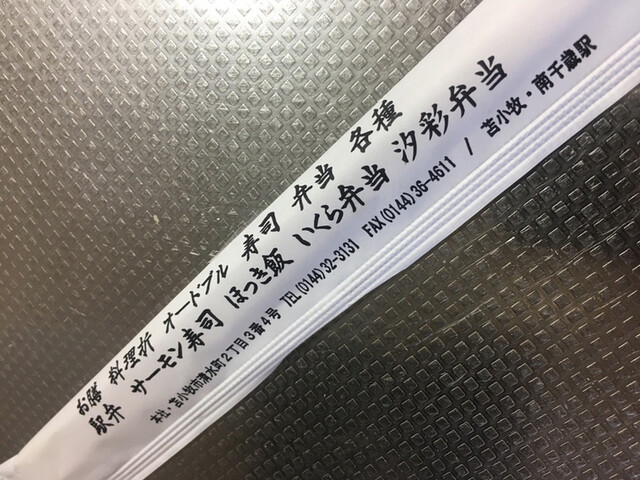 お膳 料理折 オードブル 寿司 弁当 各種
駅弁 サーモン寿司 ほっき飯 いくら弁当 汐彩弁当
本社・苫小牧市清水町2丁目3番4号 TEL(0144)32-3131 FAX(0144)36-4611 / 苫小牧・南千歳駅